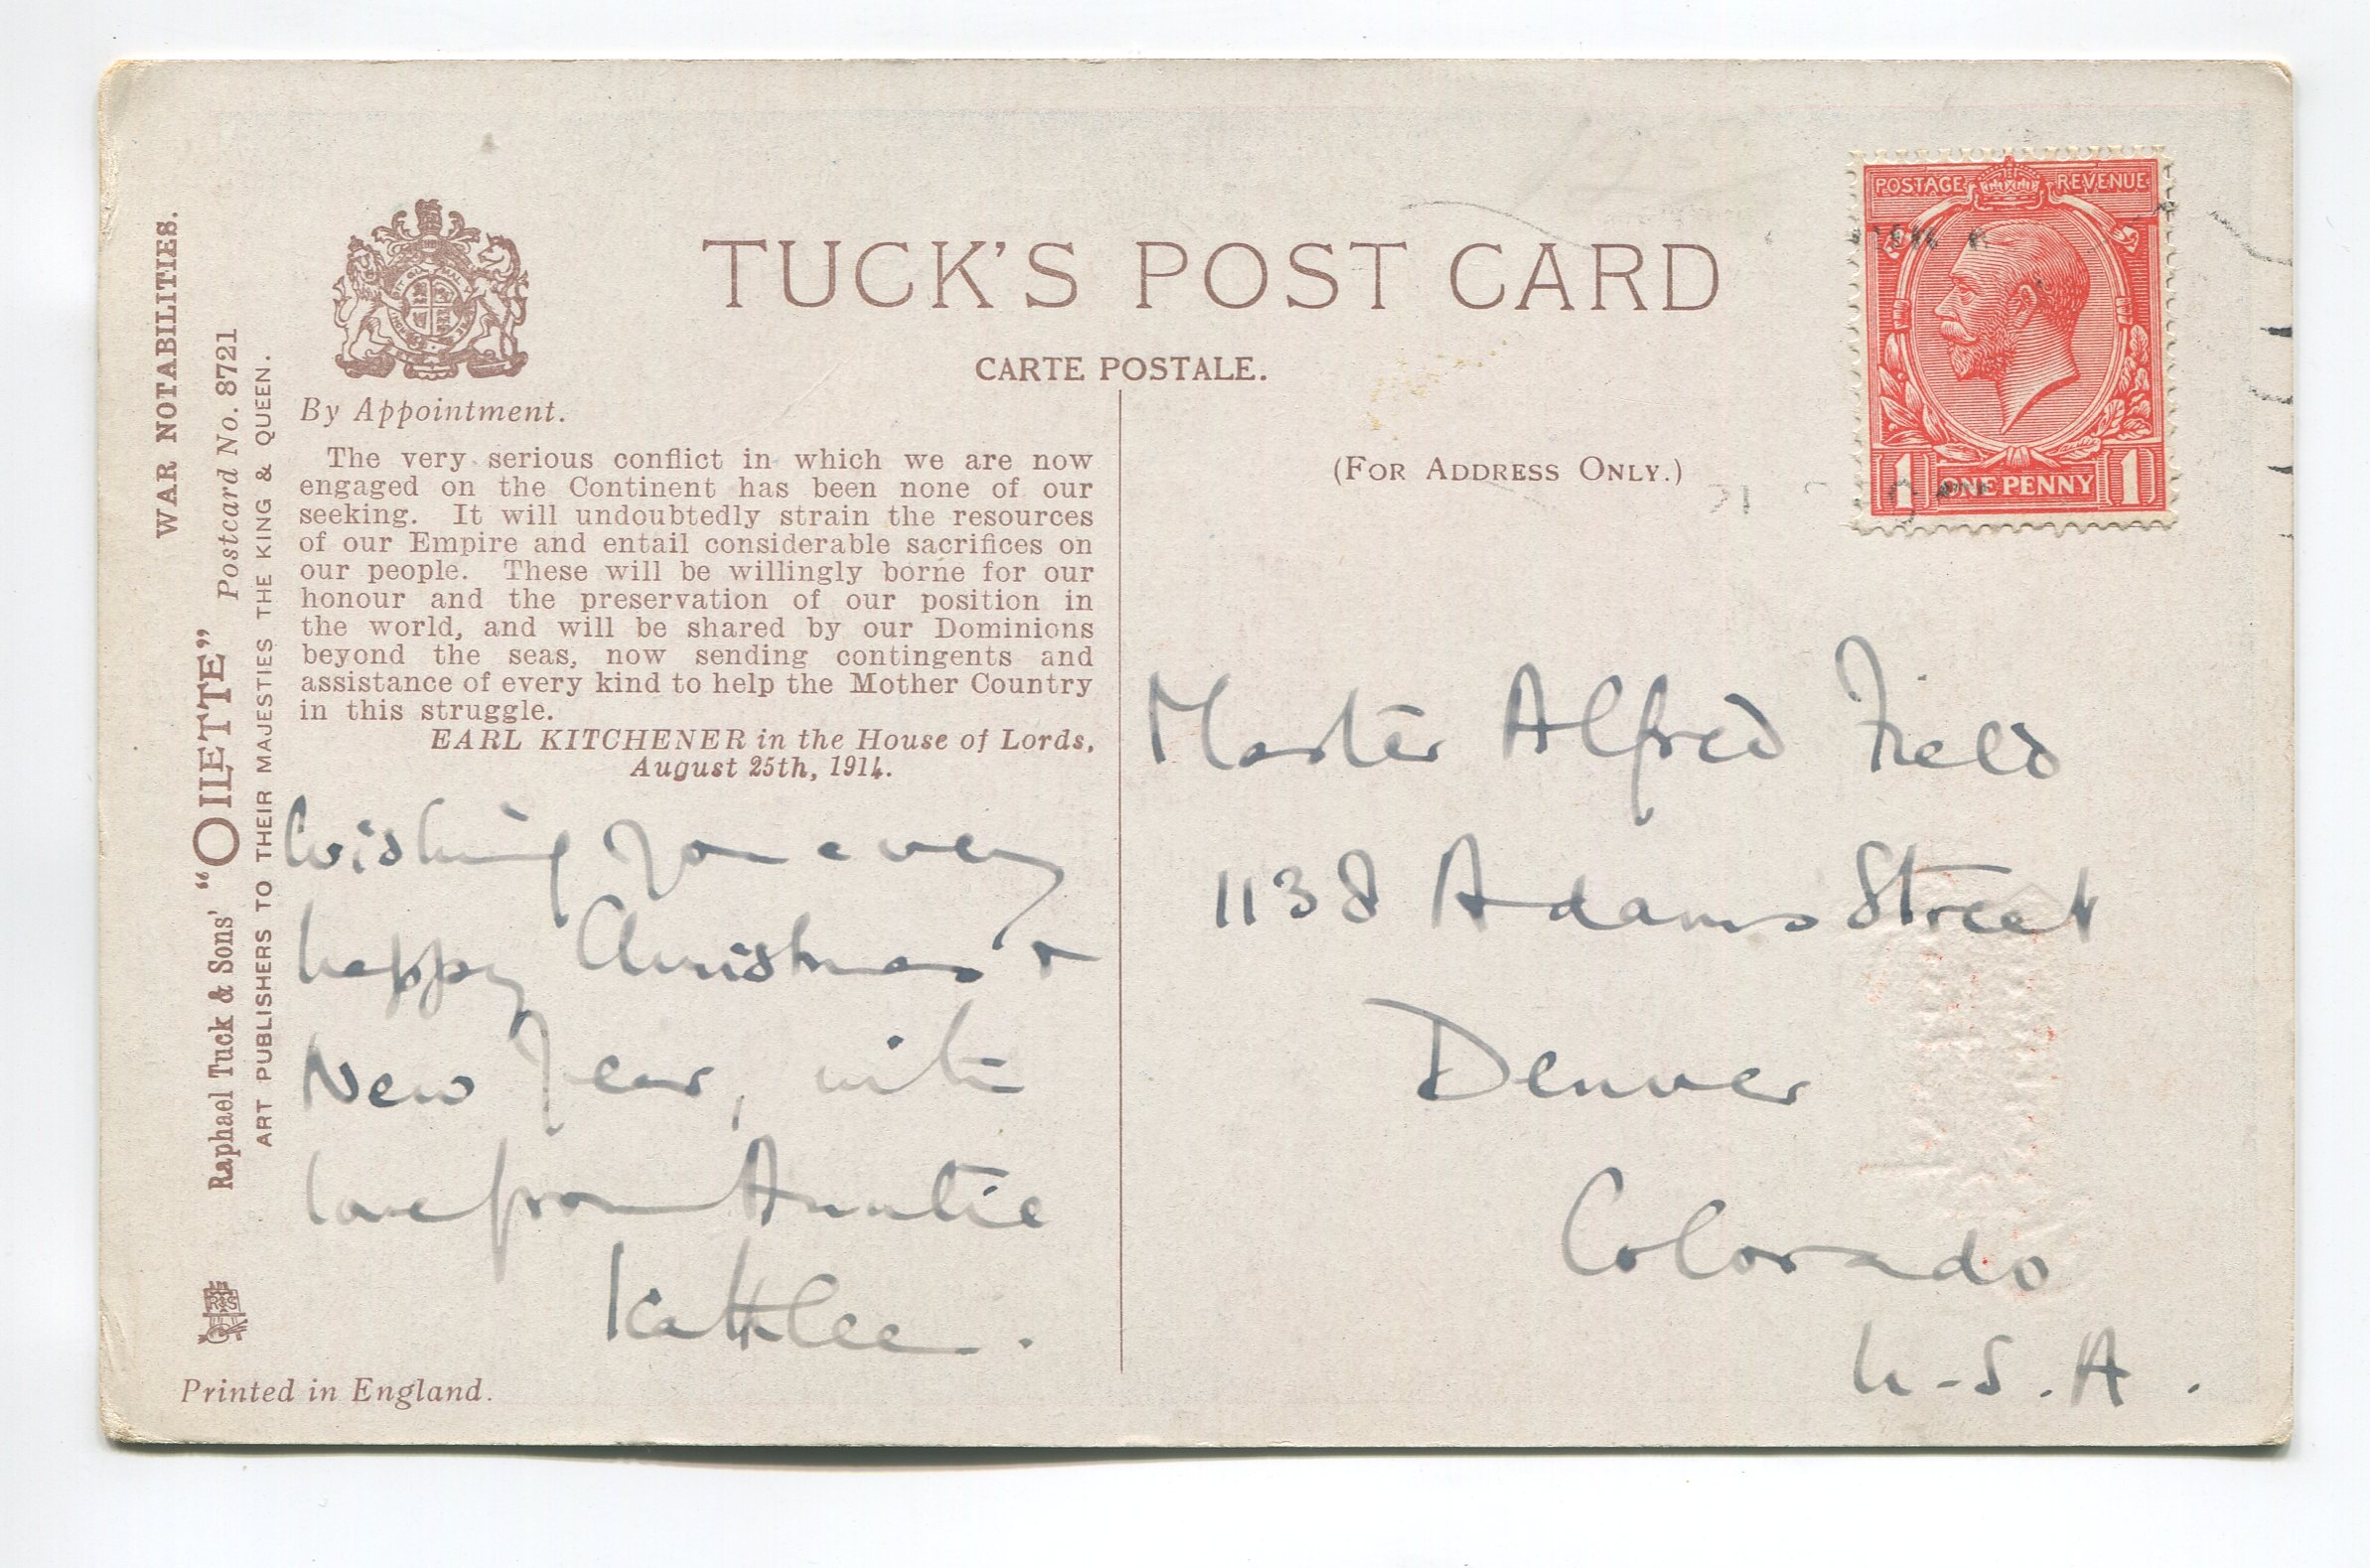 WAR NOTABILITIES.
Raphael Tuck & Sons' "OILETTE" Postcard No. 8721
ART PUBLISHERS TO THEIR MAJESTIES THE KING & QUEEN.
By Appointment.
TUCK'S POST CARD
CARTE POSTALE.
(FOR ADDRESS ONLY.)
POSTAGE REVENUE
1 ONE PENNY 1
The very serious conflict in which we are now
engaged on the Continent has been none of our
seeking. It will undoubtedly strain the resources
of our Empire and entail considerable sacrifices on
our people. These will be willingly borne for our
honour and the preservation of our position in
the world, and will be shared by our Dominions
beyond the seas, now sending contingents and
assistance of every kind to help the Mother Country
in this struggle.
EARL KITCHENER in the House of Lords,
August 25th, 1914.
Wishing you a very
happy Christmas +
New Year, with
love from Auntie
Kathlee.
Printed in England.
Master Alfred Field
1138 Adams Street
Denver
Colorado
U.S.A.